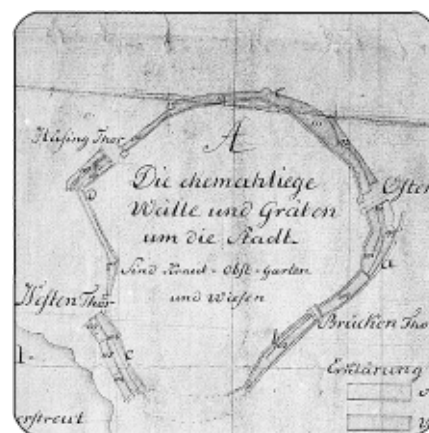 A
Hüsing Thor
Die ehemahliege
Wälle und Gräben
um die Stadt
Sind Kraut-Obst-Garten
und Wiesen
Osten
a
Westen Thor
c
Brücken Tho
Erklärung
erstreut